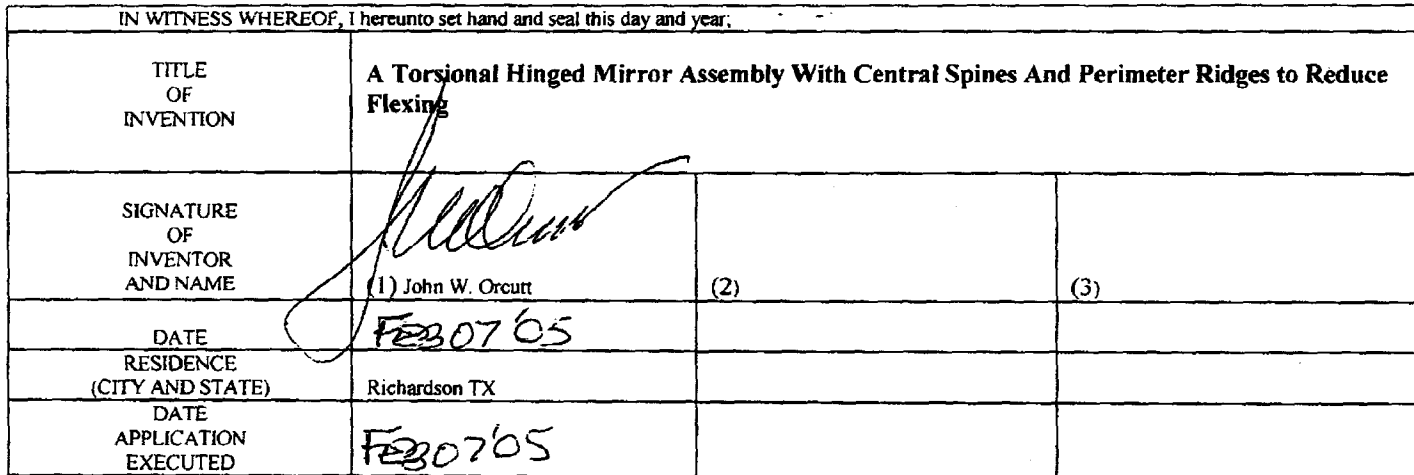 IN WITNESS WHEREOF, I hereunto set hand and seal this day and year;
TITLE
OF
INVENTION
A Torsional Hinged Mirror Assembly With Central Spines And Perimeter Ridges to Reduce
Flexing
SIGNATURE
OF
INVENTOR
AND NAME
(1) John W. Orcutt
(2)
(3)
DATE
FEB 07 '05
RESIDENCE
(CITY AND STATE)
Richardson TX
DATE
APPLICATION
EXECUTED
FEB 07 '05